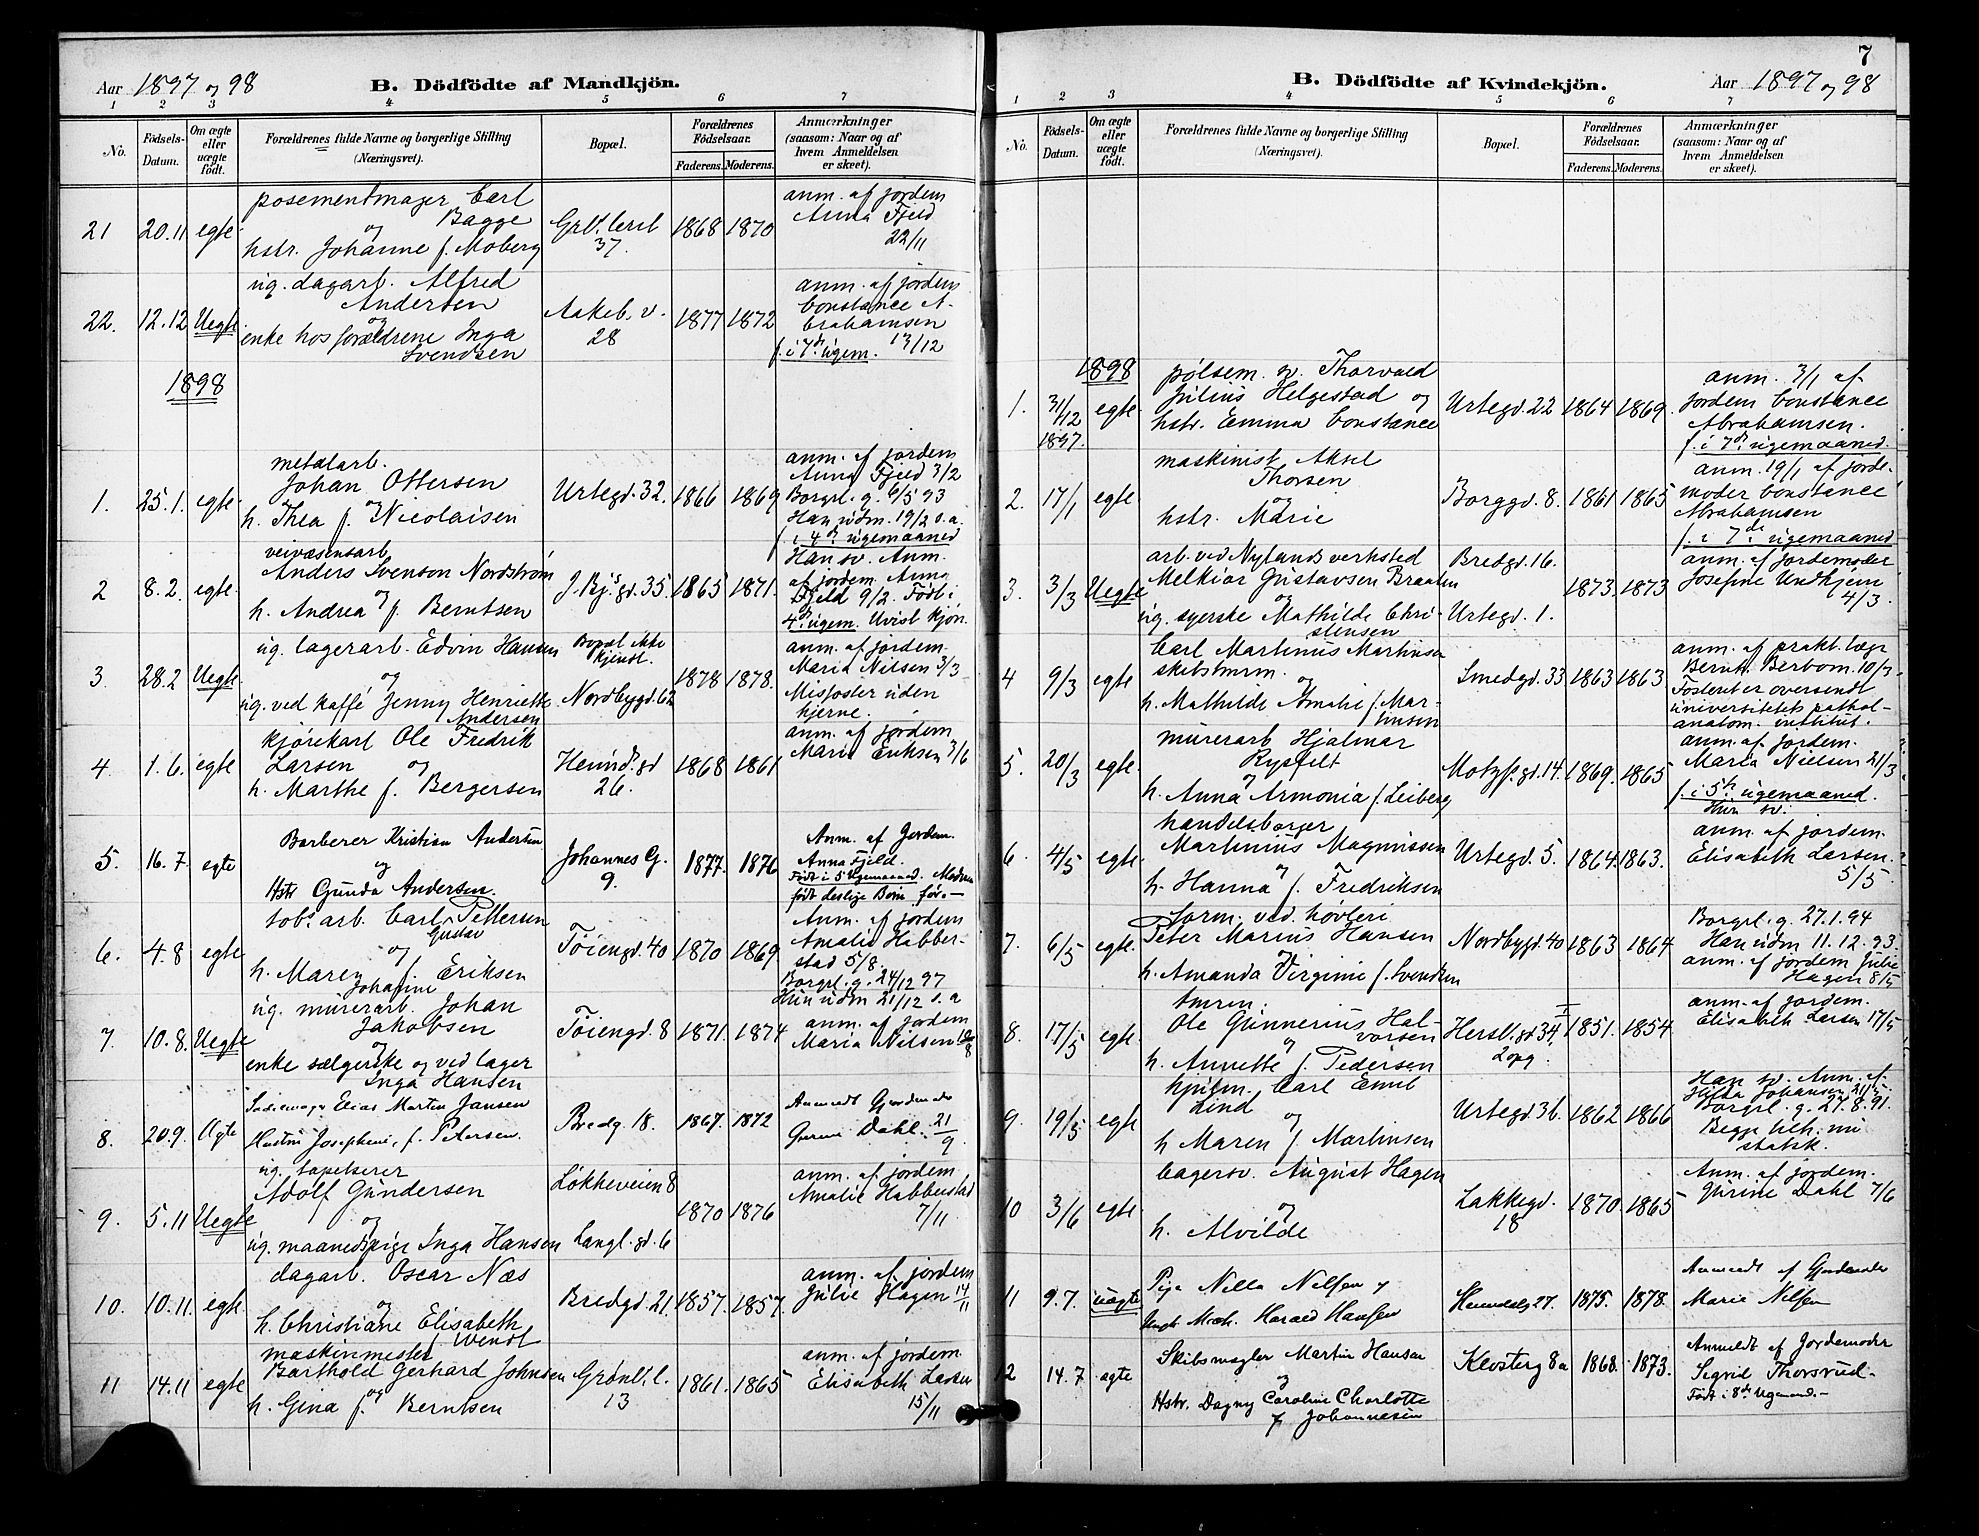 Aar 1897 og 98
B. Dödfödte af Mandkjön.
1 2 3 4 5 6 7
No.
Födsels-Datum.
Om ægte eller uægte født.
Forældrenes fulde Navne og borgerlige Stilling (Næringsvei).
Bopæl.
Forældrenes Födselsaar.
Faderens. Moderens.
Anmærkninger (saasom: Naar og af hvem Anmeldelsen er skeet).
posementmager Carl
Bagge
og
21 20.11 egte hstr. Johanne f. Moberg
37. 1868 1870
anm. af jordem
Anna Fjeld
22/11
ug. dagarb. Alfred
Andersen
og
22. 12.12 Uegte enke hos forældrene Inga
Svendsen
Aakeb.v. 28 1877 1872
anm. af jordem
Constance A-
brahamsen
f. i 7de ugem. 13/12
1898
metalarb.
Johan Ottersen
og
1. 25.1. egte h. Thea f. Nicolaisen
Urtegd. 32. 1866 1869
anm. af jordem
Anna Fjeld 3/2
Borgrl. g. 6/5 93
Han udm. 19/2 s.a.
f. i 4de ugemaaned
veivæsensarb.
Anders Svenson Nordström
og
2 8.2. egte h. Andrea f. Berntsen
J. Bj.s gd. 35. 1865 1871.
Han sv. Anm.
af jordem. Anna
Fjeld 9/2. Født i
4de ugem. Uvist kjøn.
ug. lagerarb. Edvin Hansen
og
3. 28.2 Uegte ug. ved kaffé Jenny Henriette
Andersen
Bopæl ikke
kjendt.
Nordbygd. 62 1878 1878.
anm. af jordem.
Maria Nilsen 3/3
Misfoster uden
hjerne.
kjørekarl Ole Fredrik
Larsen og
4. 1.6. egte h. Marthe f. Bergersen
Heimd. gd 26. 1868 1861
anm. af jordem
Marie Eriksen 3/6
Barberer Kristian Andersen
og
5. 16.7. egte Hstr Gunda Andersen.
Johannes G. 9. 1877. 1876
Anm. af Jordem.
Anna Fjeld.
Født i 5te Ugemaaned. Moderen
født deslige Børn før.-
tob. arb. Carl Pettersen
Gustav
og
6. 4.8 egte h. Maren f. Eriksen
Johanne
Tøiengd. 40 1870 1869
Anm. af jordem
Amalie Habber-
stad 5/8.
Borgrl. g. 24/12 97
Hun udm 21/12 s.a
ug. murerarb. Johan
Jakobsen
og
7. 10.8. Uegte enke sælgerske og ved lager
Inga Hansen
Tøiengd. 8 1871. 1874
anm. af jordem
Maria Nilsen 10/8
Elias Martin Jansen
8. 20.9. Ægte Hustru Josephine, f. Petersen.
Bredg. 18. 1867. 1872
Anmeldt Gjordemoder
Gurine Dahl. 21/9
ug. tapetserer
Adolf Gundersen
og
9. 5.11 Uegte ug. maanedspige Inga Hansen
Løkkeveien 8
Langl. gd. 6 1870 1876
anm. af jordem
Amalie Habberstad
7/11.
dagarb. Oscar Næs
og
10. 10.11. egte h. Christiane Elisabeth
f. Wendt
Bredgd. 21. 1857. 1857.
anm. af jordem
Julie Hagen 14/11
maskinmester
Barthold Gerhard Johnsen
og
11 14.11 egte h. Gina f. Berntsen
Grønl. l. 13 1861. 1865
anm. af jordem
Elisabeth Larsen
15/11
7
B. Dödfödte af Kvindekjön.
Aar 1897 og 98
1 2 3 4 5 6 7
No.
Födsels-Datum.
Om ægte eller uægte födt.
Forældrenes fulde Navne og borgerlige Stilling (Næringsvei).
Bopæl.
Forældrenes Födselsaar.
Faderens. Moderens.
Anmærkninger (saasom: Naar og af hvem Anmeldelsen er skeet).
1898
pølsem. sv. Thorvald
Julius Helgestad og
1. 31/12 1897. egte hstr. Emma Constance
Urtegd. 22 1864 1869.
anm. 3/1 af
jordem Constance
Abrahamsen.
f. i 7de ugemaaned.
maskinist Aksel
Thorsen
og
2. 17/1 egte hstr. Marie
Borggd. 8. 1861 1865
anm. 19/1 af jorde-
moder Constance
Abrahamsen
f. i 7de ugemaaned
arb. ved Nylands verksted
Melkior Gustavsen Braaten
og
3. 3/3 Uegte ug. syerske Mathilde Chri-
stensen
Bredgd. 16.
Urtegd. 1. 1873. 1873
anm. af jordemoder
Josefine Undhjem
4/3.
Carl Martinius Martinsen
skibstmrm. og
4 9/3 egte h. Mathilde Amalie f. Mar-
tinsen
Smedgd. 33 1863 1863
anm. af prakt. læge
Bernh. Berbom. 10/3
Fosteret er oversendt
universitetets pathol-
anatom. institut.
murerarb Hjalmar
Rysfelt
og
5. 20/3 egte. h. Anna Armonia f. Leiberg
Motzf. gd. 14. 1869. 1865
anm. af jordem.
Maria Nielsen 21/3
f. i 5te ugemaaned.
Hun sv.
handelsborger
Martinius Magnussen
og
6. 4/5 egte h. Hanna f. Fredriksen
Urtegd. 5. 1864. 1863.
anm. af jordem.
Elisabeth Larsen.
5/5.
form. ved høvleri
Peter Marius Hansen
og
7. 6/5 egte. h. Amanda Virginie f. Svendsen
Nordbygd. 40 1863 1864
Borgrl. g. 27.1.94
Han udm 11.12.93.
anm. af jordem Julie
Hagen 8/5
tmrm.
Ole Gunnerius Hal-
vorsen
og
8. 17/5 egte. h. Annette f. Pedersen
Hersl. gd 34, I
2opg. 1851. 1854
anm. af jordem.
Elisabeth Larsen 17/5
hjulm. Carl Emil
Lind
og
9. 19/5 egte h Maren f. Martinsen
Urtegd. 36. 1862 1866
Han sv. Anm. af
Hilda Johansen 21/5
Borgrl. g. 27.8.91.
Begge tilh. nu
statsk.
bagersv. August Hagen
og
10 3/6 egte. h. Alvilde
Lakkegd. 18 1870. 1865
Anm. af jordem.
Gurine Dahl 7/6
Pige Nilla Nilsen og
11 9.7. uægte Ungk. Mich. Harald Hansen
Heimdalsg 27. 1875. 1878.
Anmeldt af Gjordemoder
Marie Nilsen
Skibsmægler Martin Hansen
og
12 14.7 ægte Hstr. Dagny Caroline Charlotte
f. Johannesen
Klosterg 8a 1868. 1873.
Anmeldt af Jordemoder
Sigrid Thorsrud-
Født i 8de Ugemnd.-